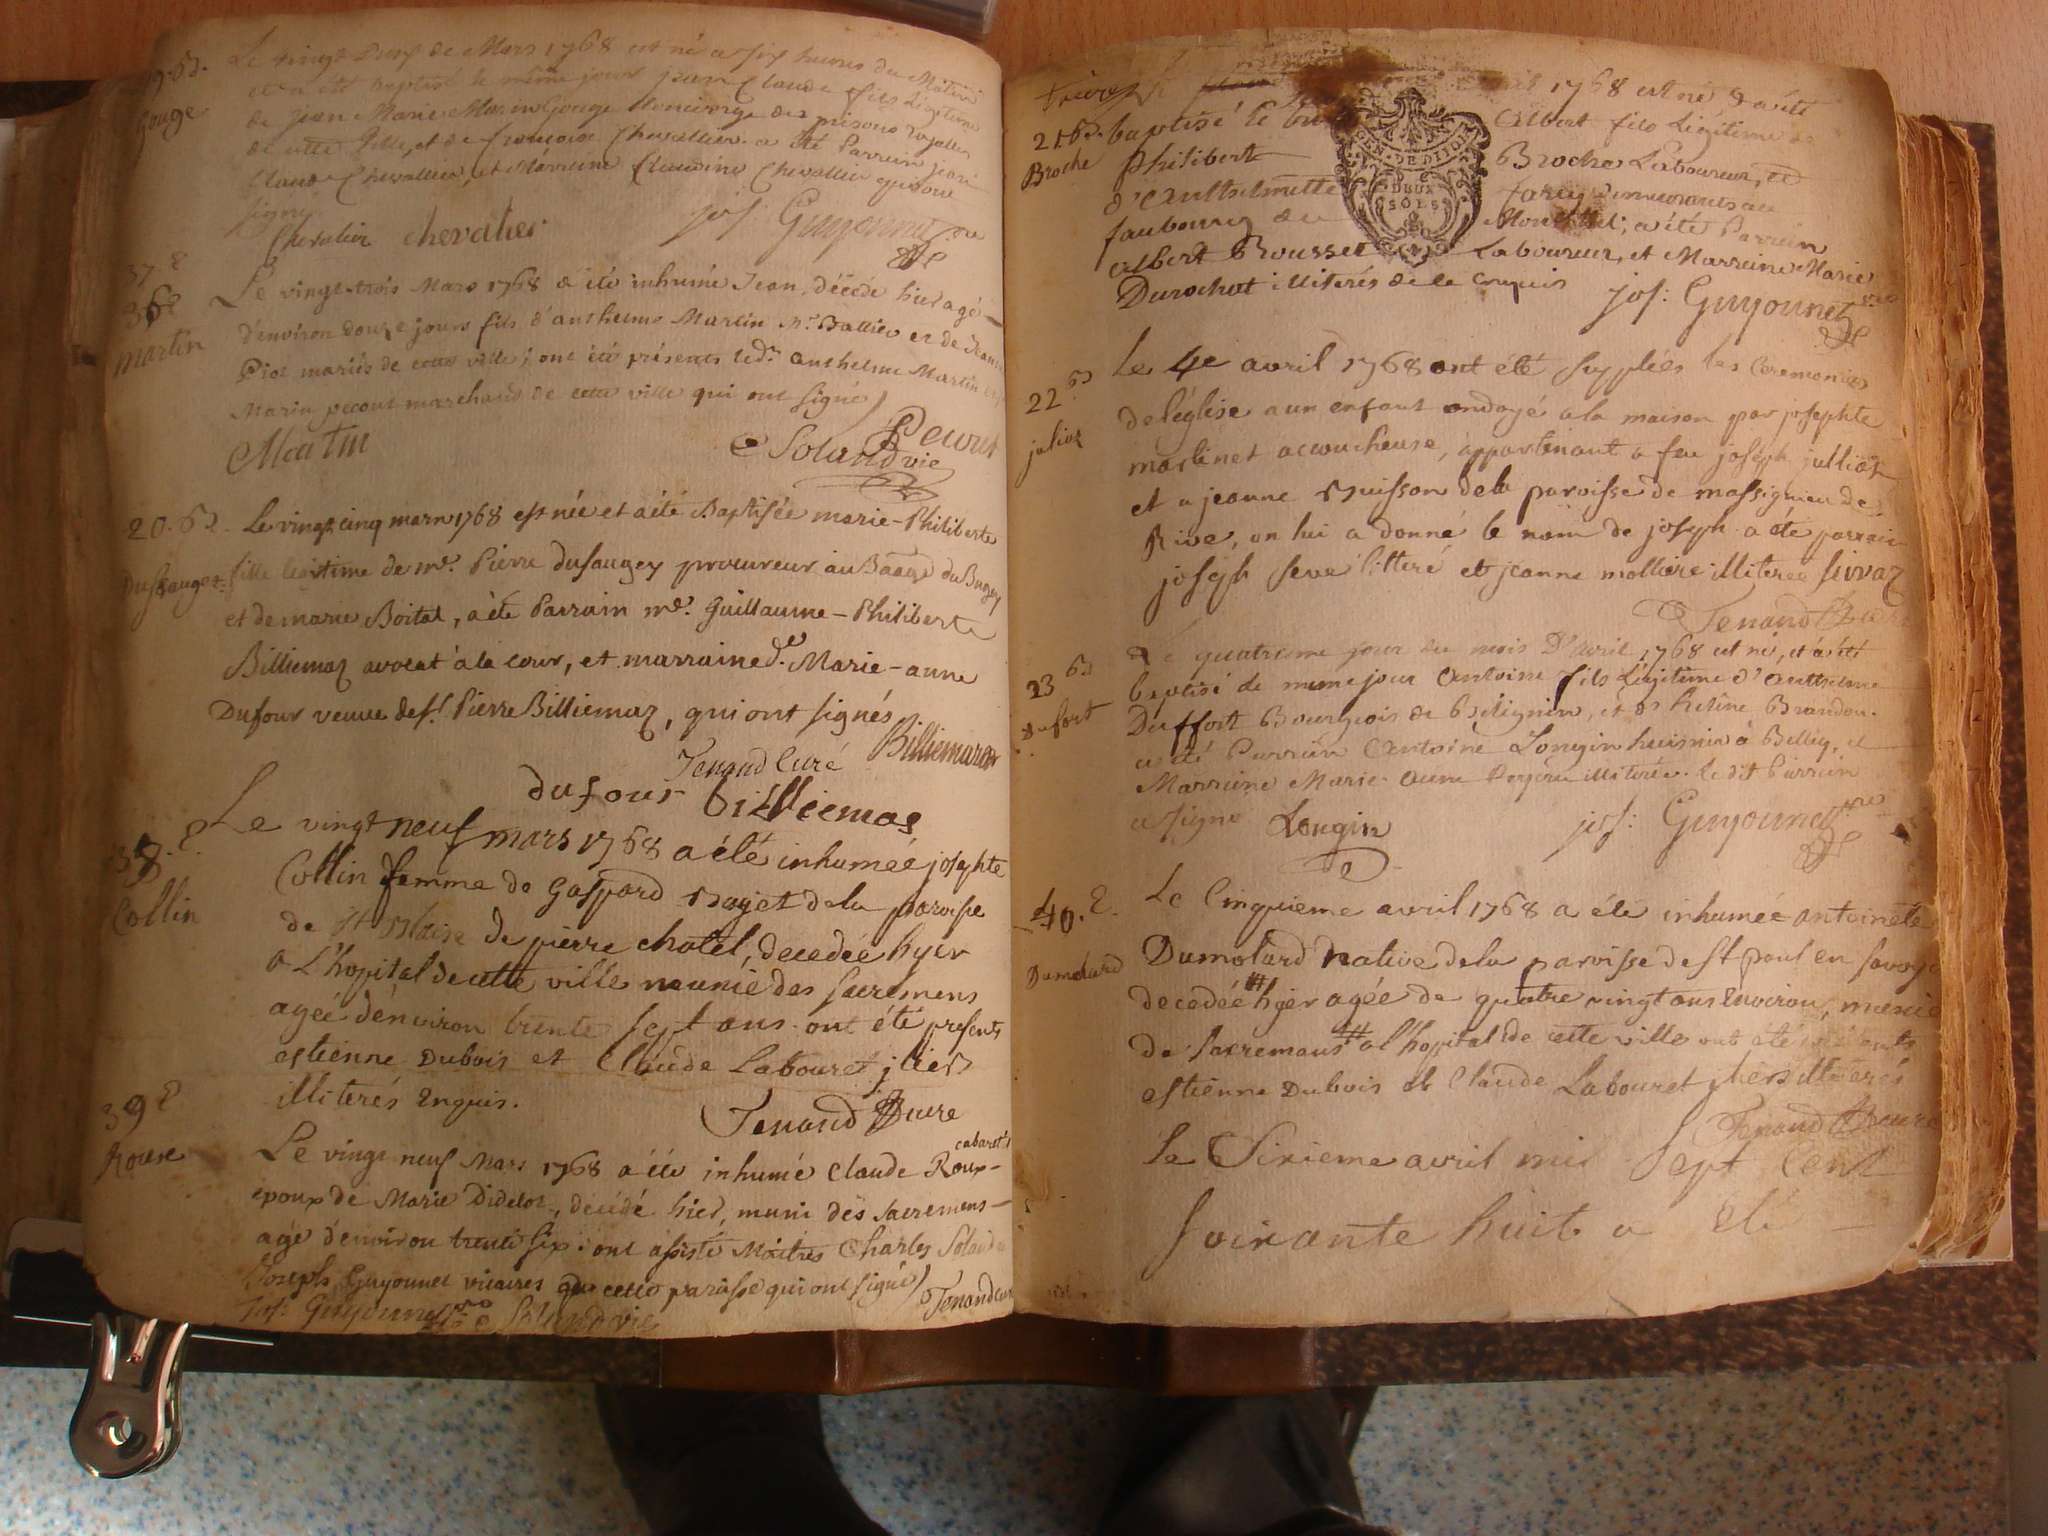 19. B.
Gouge
Le vingt Deux de Mars 1768 est né a six heures du Matin
et a été baptisé le même jour jean Claude fils Légitime
de jean Marie Marin Gouge Concierge des prisons royalles
de cette Ville, et de françoise Chevallier. a été Parrein jean
Claude Chevallier, et Marreine Claudine Chevallier qui ont
signé
Chevalier chevalier jos: Guyonnet vre
37 E
36 E
Martin
Le vingt-trois Mars 1768 a été inhumé Jean, décédé hier agé
d'environ douze jours fils d'anthelme Martin Mr. Battier et de Jeanne
Piot mariés de cette ville; ont été présents ledt. anthelme Martin et
Marin pecout marchands de cette ville qui ont signé
Martin Pecout
Soland vic
20. B.
Dusauget
Le vingt cinq mars 1768 est née et a été Baptisée marie-Philiberte
fille légitime de me. Pierre dusaugey procureur au Baage du Bugey
et de marie Boitat, a été Parrain me. Guillaume-Philiberte
Billiemaz avocat à la cour, et marraine de. Marie-anne
Dufour veuve de sr. Pierre Billiemaz, qui ont signés
Tenand Curé Billiemaz
dufour billiemas
38. E.
Collin
Le vingt neuf mars 1768 a été inhumée josephte
Collin femme de Gaspard Bajet de la paroisse
de St Blaise de pierre chatel, decedée hyer
a L'hopital de cette ville munie des sacremens
agée d'environ trente sept ans. ont été presents
estienne Dubois et Claude Labouret
illiterés Enquis.
Tenand Cure
39 E
Rouse
Le vingt neuf Mars 1768 a été inhumé Claude Roux- cabaret
epoux de Marie Didelot, décédé hier, muni des Sacremens-
agé d'environ trente six: ont assisté Maitres Charles Soland
Joseph Guyonnet vicaires de cette paroisse qui ont signé
Jos: Guyonnet vre Soland vic Tenand cure
21. B.
Broche
1768 est né & a été
baptisé le Albert fils Légitime de
Philibert Broche Laboureur, et
d'Anthelmette demeurants au
faubourg du a été Parrein
Albert Rousset Laboureur, et Marreine Marie
Durochat illiterés de ce enquis jos: Guyonnet vre
GEN. DE DIJON
DEUX
SOLS
22 B
juliot
Le 4e avril 1768 ont été supplées les ceremonies
de l'église a un enfant ondoyé a la maison par josephte
martinet accoucheuse, appartenant a feu joseph julliot
et a jeanne Buisson de la paroisse de massignieu de
Rive, on lui a donné le nom de joseph. a été parrain
joseph seva litteré et jeanne molliere illiterée sivvaz
Tenand Cure
23 B
Dufort
Le quatrieme jour du mois D'avril 1768 est né, et a été
baptisé le meme jour Antoine fils Légitime d'Anthelme
Duffort Bourgeois de Bitignin, et de helène Brandon.
a été Parrein Antoine Longin huissier à Belley, et
Marreine Marie Anne illiterée. le dit Parrein
a signé Longin jos: Guyonnet vre
40. E.
Dumolard
Le Cinquieme avril 1768 a été inhumée antoinete
Dumolard native de la paroisse de St paul en savoye
decedée # hyer agée de quatre vingt ans Environ, munie
de sacremans # a l'hopital de cette ville ont été presents
estienne Dubois et Claude Labouret illiterés
Tenand Cure
Le Sixieme avril mil Sept Cent
soixante huit a été